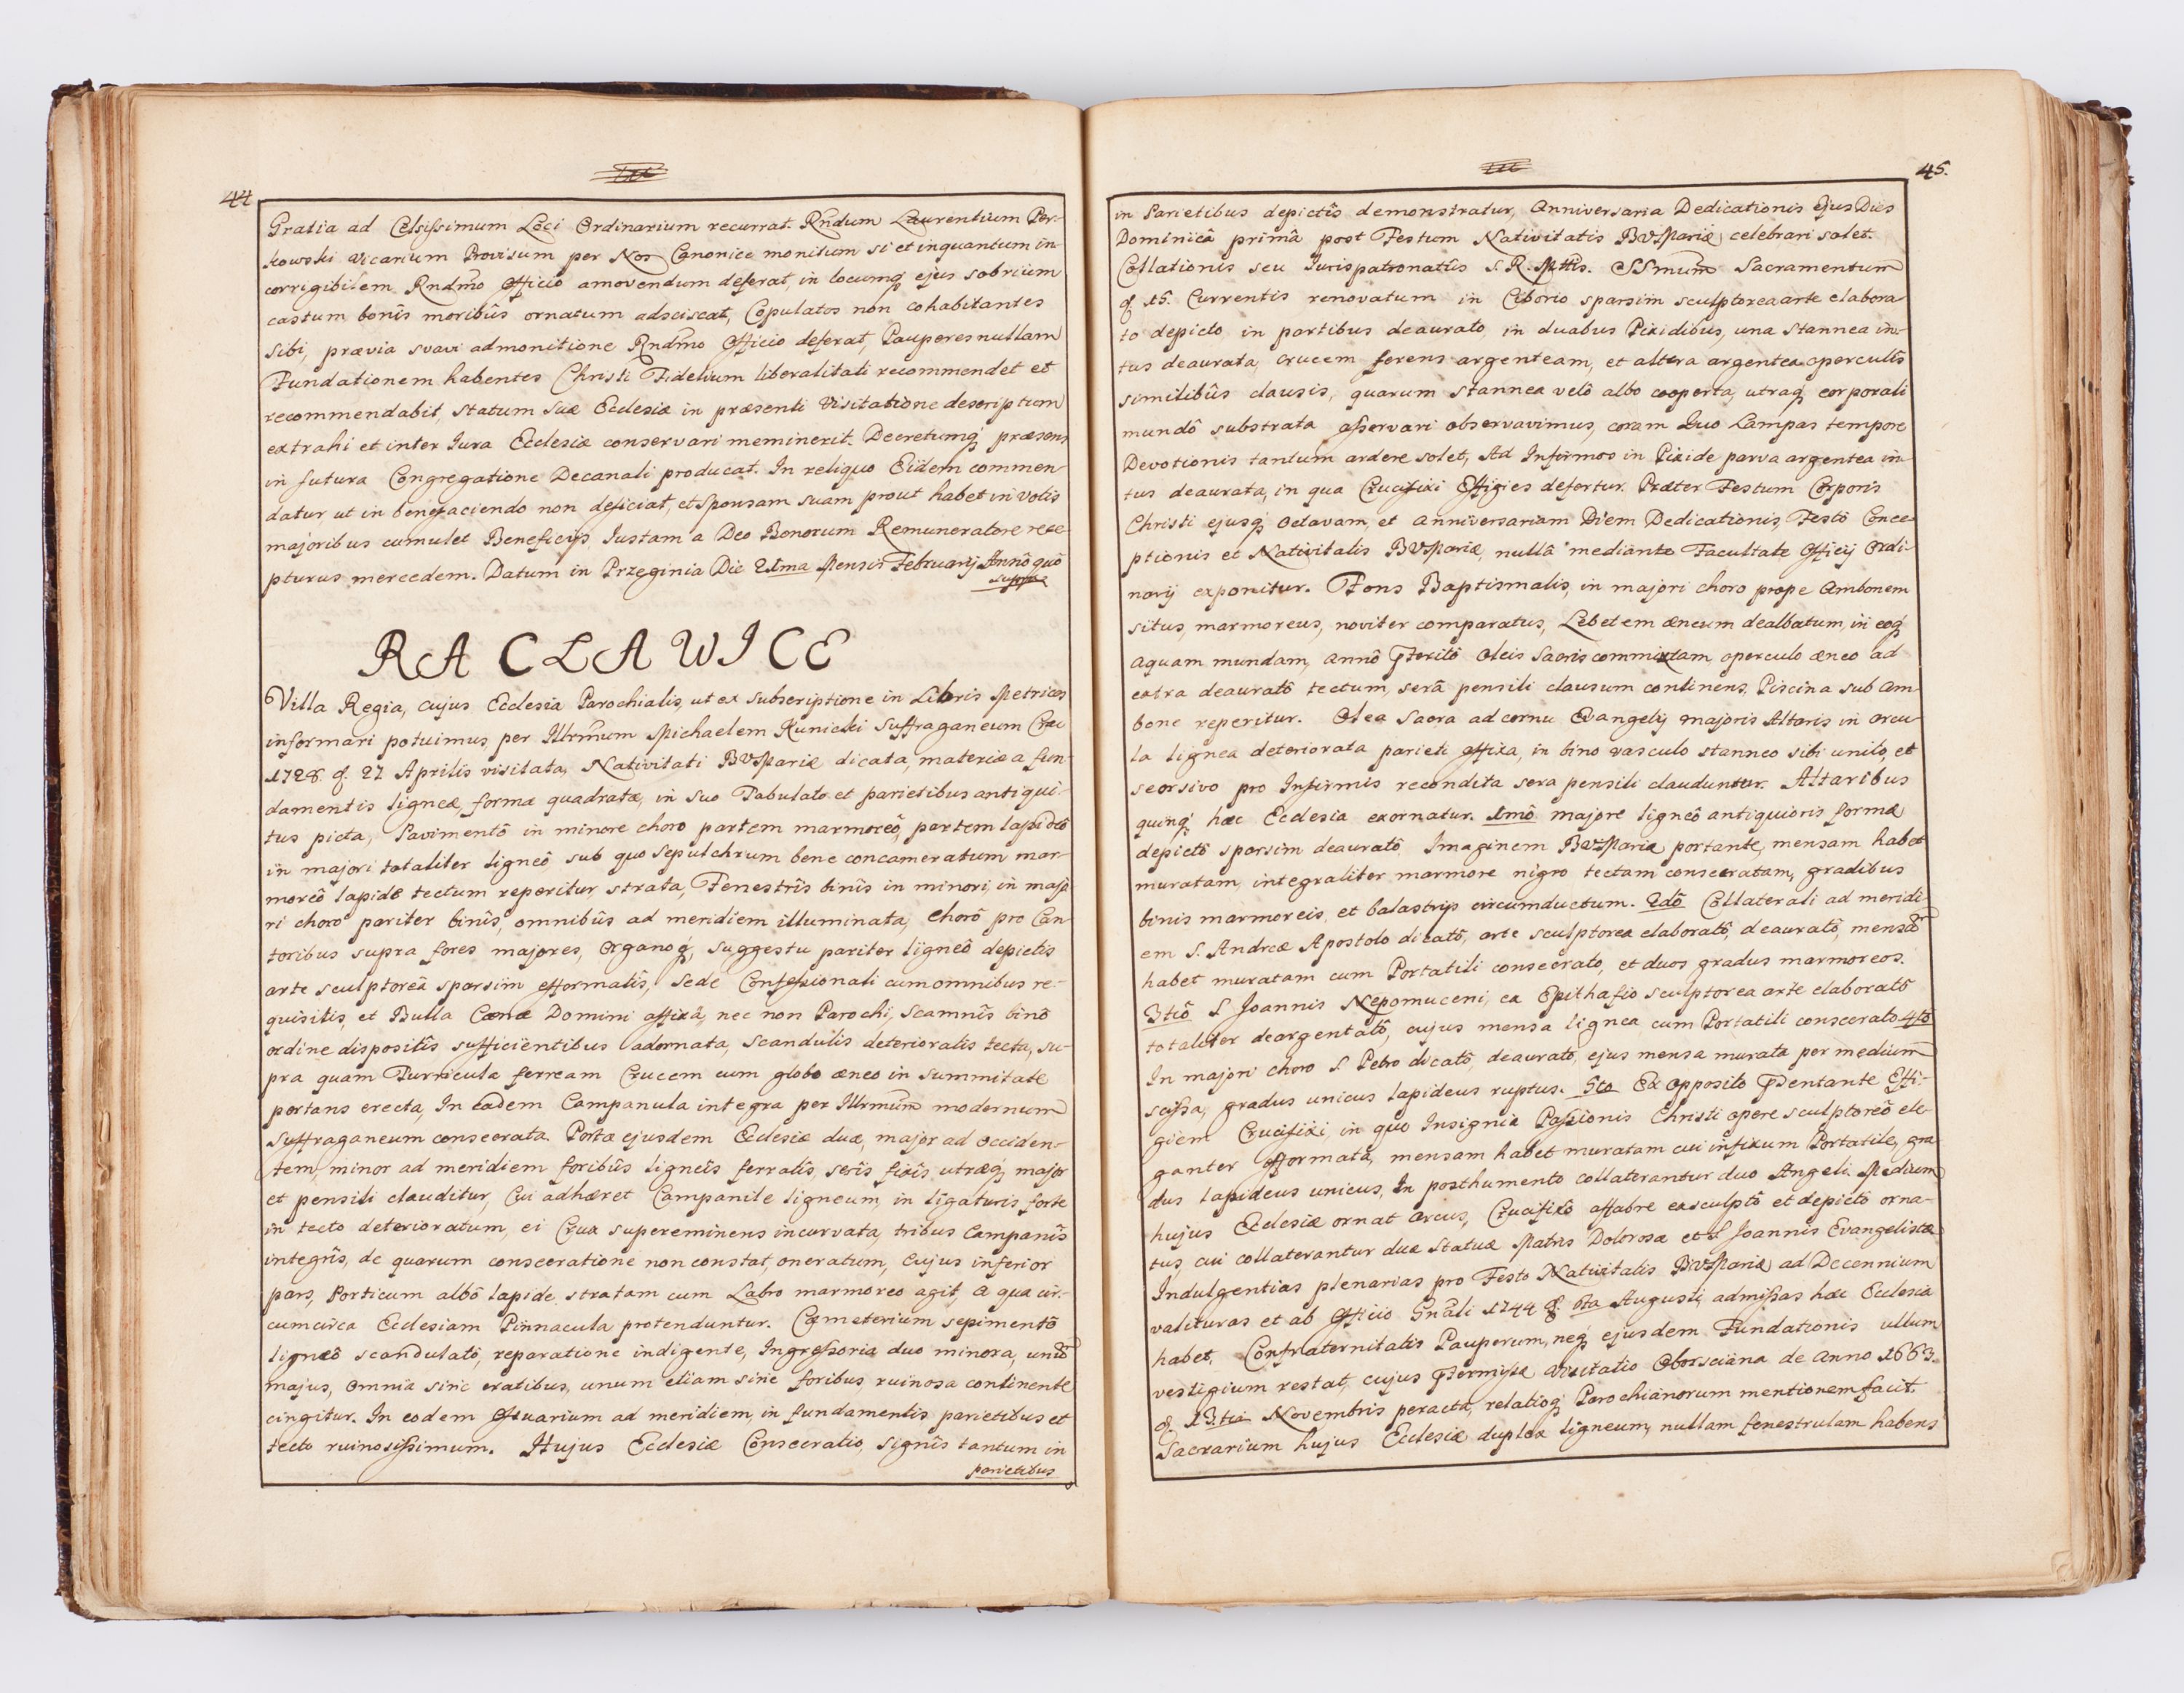 44
Gratia ad Celsissimum Loci Ordinarium recurrat. Rndum Laurentium Per-
kowski Vicarium Provisum per Nos Canonice monitum si et inquantum in-
corrigibilem Rndmo Officio amovendum deferat, in locumq, ejus sobrium
castum bonîs moribûs ornatum adsciscat, Copulatos non cohabitantes
sibi, prævia svavi admonitione Rndmo Officio deferat, Pauperes nullam
Fundationem habentes Christi Fidelium liberalitati recommendet et
recommendabit, statum suæ Ecclesiæ in præsenti Visitatione descriptum
extrahi et inter Jura Ecclesiæ conservari meminerit. Decretumq, præsens
in futura Congregatione Decanali producat. In reliquo Eidem commen-
datur ut in benefaciendo non deficiat, et Sponsam suam prout habet in votis
majoribus cumulet Beneficijs, Justam a Deo Bonorum Remuneratore rece-
pturus mercedem. Datum in Przeginia Die 21ma Mensis Februarij Annô quô
supra
RACLAWICE
Villa Regia, cujus Ecclesia Parochialis, ut ex subscriptione in Libris Metrices
informari potuimus, per Illrmum Michaelem Kunicki Suffraganeum Crac
1728. d. 27 Aprilis visitata, Nativitati BVMariæ dicata, materiæ a fun-
damentis ligneæ, formæ quadratæ, in suo Tabulato et parietibus antiqui-
tus picta, Pavimentô in minore choro partem marmoreô, partem lapideô
in majori totaliter ligneô sub quo sepulchrum bene concameratum mar-
moreô lapide tectum reperitur strata, Fenestrîs binîs in minori, in majo
ri choro pariter binîs, omnibûs ad meridiem illuminata, Chorô pro Can-
toribus supra fores majores, Organoq, suggestu pariter ligneô depictis
arte sculptoreâ sparsim efformatîs, Sede Confessionali cum omnibus re-
quisitis, et Bulla Cænæ Domini affixâ, nec non Parochi, Scamnîs binô
ordine dispositîs sufficientibus adornata, Scandulis deterioratis tecta, su-
pra quam Turricula ferream Crucem cum globo æneo in summitate
portans erecta, In eadem Campanula integra per Illrmum modernum
Suffraganeum consecrata. Portæ ejusdem Ecclesiæ duæ, major ad Occiden-
tem, minor ad meridiem foribûs ligneîs ferratis, serîs fixîs, utræq, major
et pensili clauditur, Cui adhæret Campanile ligneum, in ligaturis forte
in tecto deterioratum, ei Crux supereminens incurvata, tribus Campanîs
integrîs, de quarum consecratione non constat, oneratum, Cujus inferior
pars, Porticum albô lapide stratam cum Labro marmoreo agit, a qua cir-
cumcirca Ecclesiam Pinnacula protenduntur. Cæmeterium sepimentô
ligneô scandulatô, reparatione indigente, Ingressoria duo minora, unũ
majus, omnia sine cratibus, unum etiam sine foribus ruinosa continente
cingitur. In eodem Ossuarium ad meridiem, in fundamentis parietibus et
tecto ruinosissimum. Hujus Ecclesiæ Consecratio, signîs tantum in
parietibus
45.
in Parietibus depictîs demonstratur, Anniversaria Dedicationis Ejus Dies
Dominicâ primâ post Festum Nativitatis BVMariæ celebrari solet.
Collationis seu Jurispatronatûs S. R. Mttis. SSmum Sacramentum
d. 15. Currentis renovatum in Ciborio sparsim sculptorea arte elabora
to depicto, in partibus deaurato, in duabus Pixidibus, una Stannea in-
tus deaurata, crucem ferens argenteam, et altera argentea operculîs
similibûs clausis, quarum Stannea velô albo cooperta, utraq, corporali
mundô substrata asservari observavimus, coram Quo Lampas tempore
Devotionis tantum ardere solet, Ad Infirmos in Pixide parva argentea in-
tus deaurata, in qua Crucifixi Effigies defertur. Præter Festum Corporis
Christi ejusq, Octavam, et Anniversariam Diem Dedicationis, Festô Conce-
ptionis et Nativitatis BVMariæ, nullâ mediante Facultate Officij Ordi-
narij exponitur. Fons Baptismalis, in majori choro prope Ambonem
situs, marmoreus, noviter comparatus, Lebetem æneum dealbatum, in eoq,
aquam mundam, Annô pteritô Oleis Sacris commixtam, operculo æneo ad
extra deauratô tectum, serâ pensili clausum continens, Piscina sub Am-
bone reperitur. Olea Sacra ad cornu Evangelij majoris Altaris in arcu-
la lignea deteriorata parieti affixa, in bino vasculo stanneo sibi unito, et
seorsivo pro Infirmis recondita sera pensili clauduntur. Altaribus
quinq, hæc Ecclesia exornatur. 1mô majore ligneô antiquioris formæ
depictô sparsim deauratô Imaginem BVMariæ portante, mensam habet
muratam, integraliter marmore nigro tectam consecratam, gradibus
binis marmoreis, et balastrijs circumductum. 2dô Collaterali ad meridi-
em S. Andreæ Apostolo dicatô, arte sculptorea elaboratô, deauratô, mensã
habet muratam cum Portatili consecrato, et duos gradus marmoreos.
3tiô S. Joannis Nepomuceni, ex Epithafio sculptorea arte elaboratô
totaliter deargentatô, cujus mensa lignea cum Portatili consecrato. 4tô
In majori choro S. Petro dicatô, deauratô, ejus mensa murata per medium
scissa, gradus unicus lapideus ruptus. 5to Ex opposito psentante Effi-
giem Crucifixi, in quo Insignia Passionis Christi opere sculptoreô ele-
ganter efformata, mensam habet muratam cui infixum Portatile, gra
dus lapideus unicus, In posthumento collaterantur duo Angeli. Medium
hujus Ecclesiæ ornat Arcus, Crucifixô affabre exsculptô et depictô orna-
tus, cui collaterantur duæ Statuæ Matris Dolorosæ et S. Joannis Evangelistæ
Indulgentias plenarias pro Festo Nativitatis BVMariæ ad Decennium
valituras et ab Officio Gnali 1744 d. 8va Augusti, admissas hæc Ecclesia
habet. Confraternitatis Pauperum, neq, ejusdem Fundationis ullum
vestigium restat, cujus Visitatio Oborsciana de Anno 1663.
d. 13tia Novembris peracta, relatioq, Parochianorum mentionem facit.
Sacrarium hujus Ecclesiæ duplex ligneum, nullam fenestrulam habens